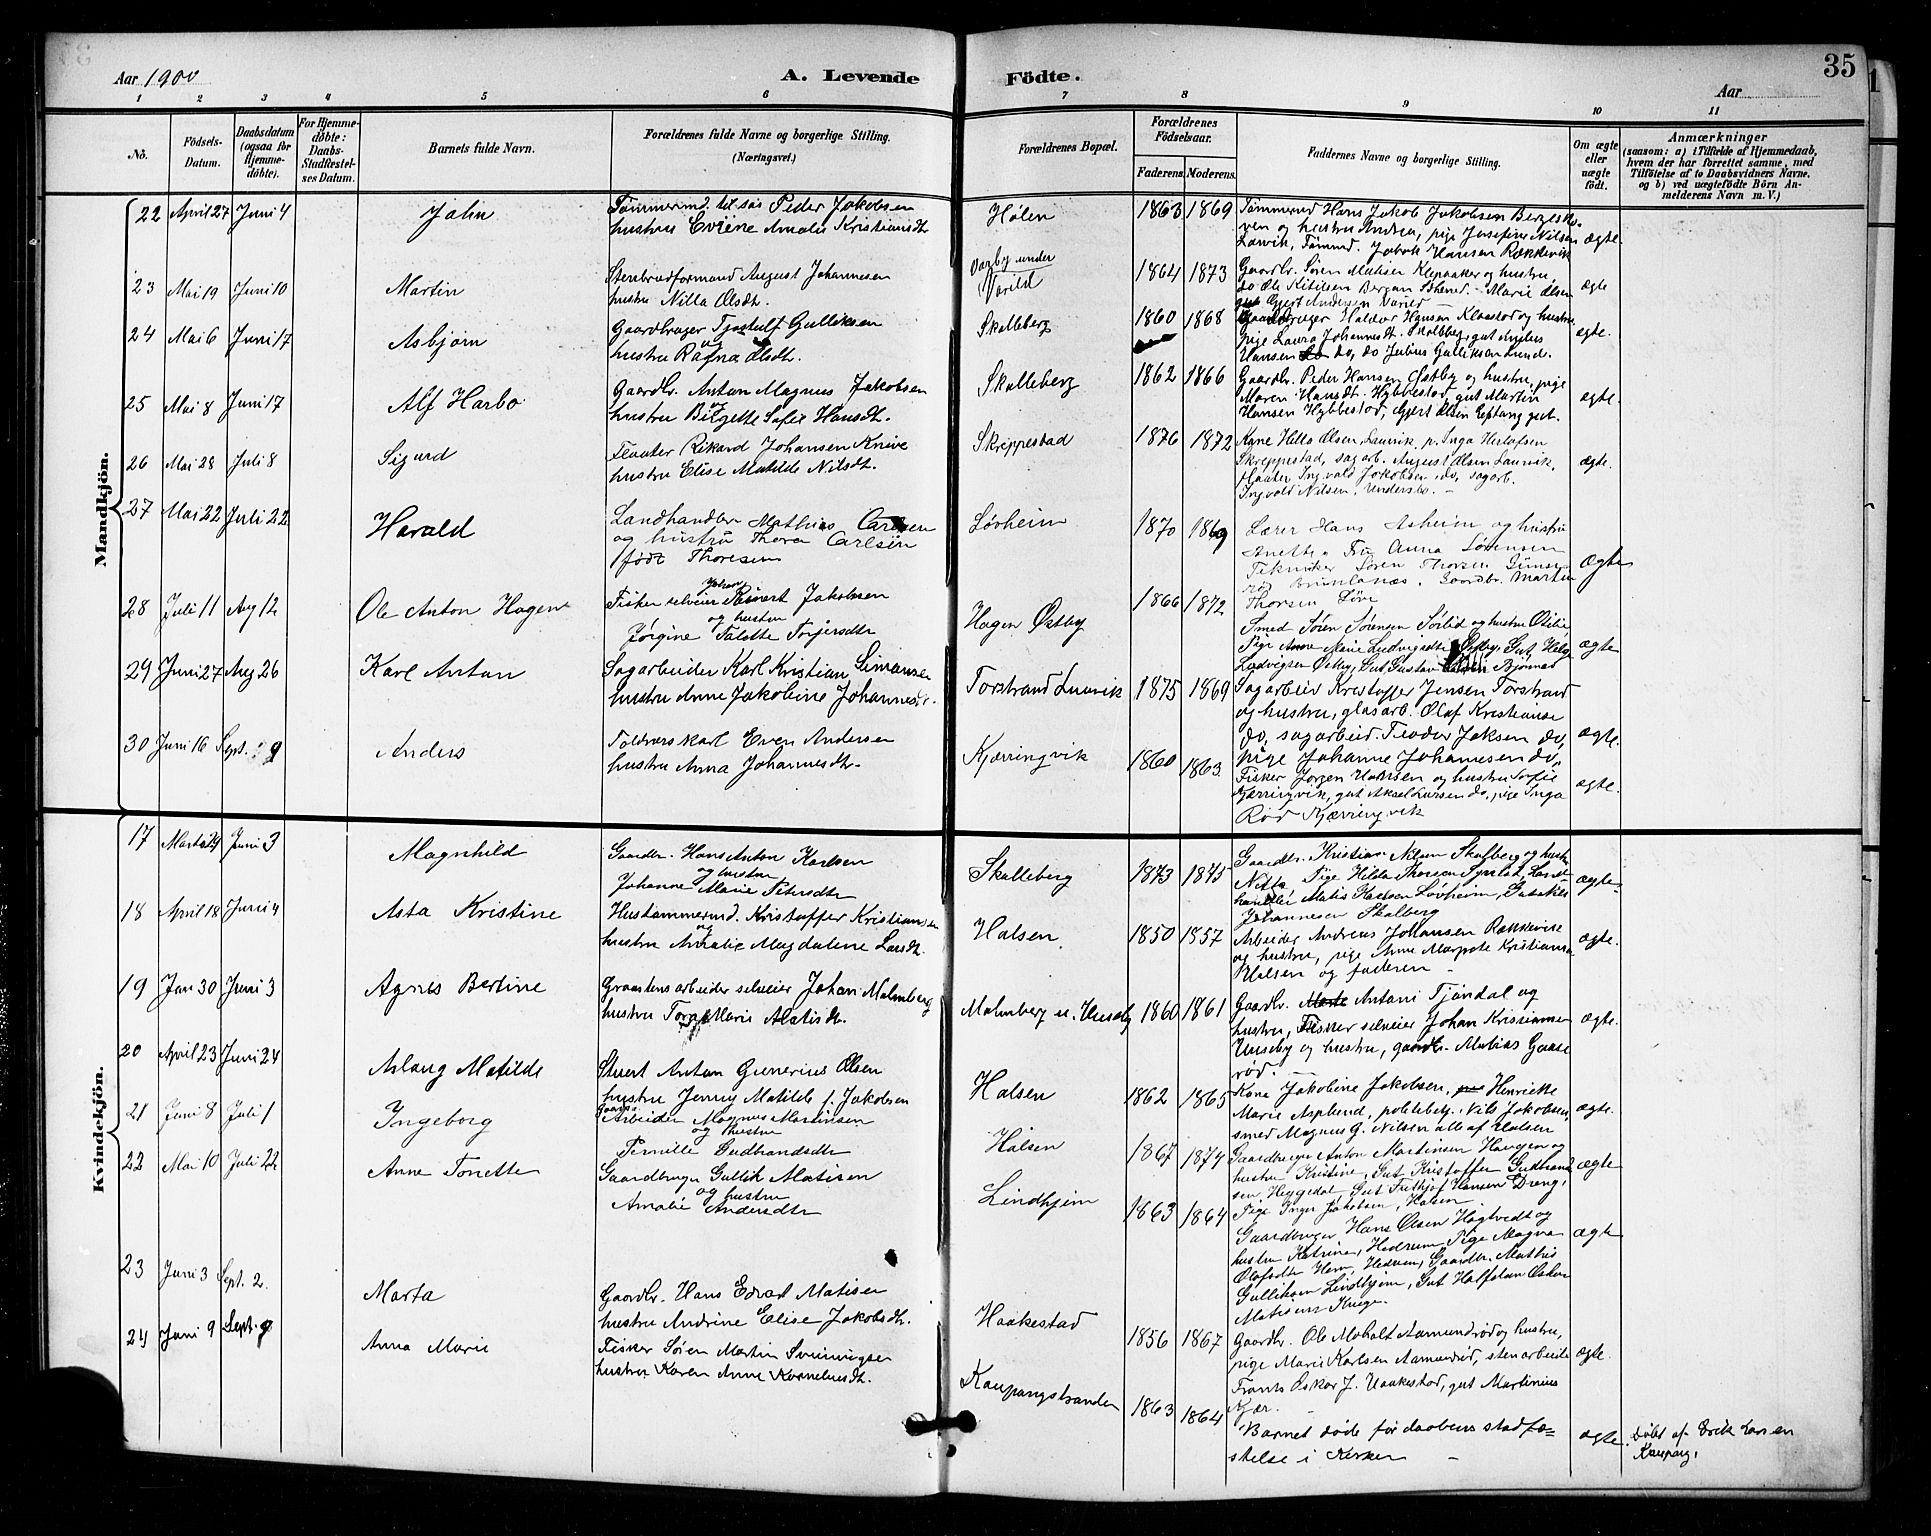 Aar 1900
A. Levende Födte.
35
Aar
1 2 3 4 5 6 7 8 9 10 11
No.
Födsels-Datum.
Daabsdatum (ogsaa for Hjemme-döbte).
For Hjemme-döbte: Daabs-Stadfæstel-ses Datum.
Barnets fulde Navn.
Forældrenes fulde Navne og borgerlige Stilling. (Næringsvei.)
Forældrenes Bopæl.
Forældrenes Födselsaar.
Faderens. Moderens.
Faddernes Navne og borgerlige Stilling.
Om ægte eller uægte födt.
Anmærkninger
(saasom: a) i Tilfælde af Hjemmedaab, hvem der har forrettet samme, med Tilföielse af to Daabsvidners Navne, og b) ved uægtefödte Börn An-melderens Navn m. V.)
Mandkjön.
22 April 27 Juni 4
Peder Jakobsen
hustru Amalie Kristiansdt.
Hølen
1863 1869
Tømmermd Hans Jakob Jakobsen
ven og hustru Andrea, pige Josefine Nilsen
Laurvik, Tømmd. Jakob Hansen Rækkevik
ægte.
23 Mai 19 Juni 10
Martin
Stenbrudformand August Johannesen
hustru Nilla Olsdt.
Varby under Varild
1864 1873
Gaardbr. Søren Matisen Klepaaker og hustru,
do Ole Kittilsen Bergan Marie Olsen
Gjert Andersen Varild
ægte
24 Mai 6 Juni 17
Asbjørn
Gaardbruger Tjostulf Gulliksen
og
hustru Ragna Olsdt.
Skalleberg
1860 1868
Gaardbruger Haldor Hansen Klaastad og hustru
pige Laura Johannesdt. Skalleberg, gut Anders
Hansen do, do Julius Gulliksen Lund.
ægte.
25 Mai 8 Juni 17
Alf Harbo
Gaardbr. Anton Magnus Jakobsen
og
hustru Birgette Sofie Hansdt.
Skalleberg
1862 1866
Gaardbr. Peder Hansen Østby og hustru, pige
Maren Hansdt. Hybbestad, gut Martin
Hansen Hybbestad, Gjert Olsen Eftang gut.
ægte.
26 Mai 28 Juli 8
Sigurd
Fløater Rikard Johansen Knive
hustru Elise Matilde Nilsdt.
Skreppestad
1876 1872
Kone Hella Olsen, Laurvik, p. Inga
Skreppestad, sagarb. August Olsen Laurvik,
Fløater Ingvald Jakobsen, do, sagarb.
Ingvald Nilsen, Undersbo. -
ægte.
27 Mai 22 Juli 22
Harald
Landhandler Mathias Carlsen
og hustru Thora Carlsen
født Thoresen
Løvheim
1870 1869
Lærer Hans Asheim og hustru
Anette, Fru Anna Sørensen
Tekniker Søren Thorsen
Brunlanæs. Gaardbr. Martin
Thorsen Løve
ægte
28 Juli 11 Aug 12
Ole Anton Hagen
Johan
Fisker selveier Reinert Jakobsen
og hustru
Jørgine Talette Torjersdtr
Hagen Østby
1866 1872
Smed Søren Sørensen Sørlid og hustru Olivie
Pige Marie Ludvigsdtr Østby, Gut Helge
Ludvigsen Østby, Gut Gustav Bjønnes
ægte
29 Juni 27 Aug 26
Karl Anton
Sagarbeider Karl Kristian Simonsen
hustru Anne Jakobine Johannesdt.
Torstrand Laurvik
1875 1869
Sagarbeid Kristoffer Jensen Torstrand
og hustru, glasarb. Olaf Kristianse
do, sagarbeid. Teodor do,
pige Johanne Johannesen do,
ægte.
30 Juni 16 Sept. 9
Anders
Toldvørskarl Even Andersen
hustru Anna Johannesdtr.
Kjærringvik
1860 1863
Fisker Jørgen Hansen og hustru Sofie
Kjærringvik, gut Aksel Larsen do, pige Inga
Rød Kjærringvik
ægte.
Kvindekjön.
17 Marts 24 Juni 3
Magnhild
Gaardbr. Hans Anton Karlsen
og hustru
Johanne Marie Petersdtr
Skalleberg
1873 1875
Gaardbr. Kristian Nilsen Skalberg og hustru
Netta, Pige Hilda Thorsen Land-
handler Matis Karlsen Løvheim, Gut
Johannesen Skalberg
ægte
18 April 18 Juni 4
Asta Kristine
Hustømmermd. Kristoffer Kristiansen
og
hustru Amalie Magdalene Larsdt.
Halsen
1850 1857
Arbeider Andreas Johansen Rækkevik
og hustru, pige Anne Margrete Kristiansen
Halsen og faderen -
ægte.
19 Jan 30 Juni 3
Agnes Bertine
Graastensarbeider selveier Johan Malmberg
hustru Marie Matisdt.
Malmberg u. Huseby
1860 1861
Gaardbr. Antoni Tjøndal og
hustru, Fisker selveier Johan Kristiansen
Huseby og hustru, gaardbr. Matias Gaase
rød. -
ægte.
20 April 23 Juni 24
Aslaug Matilde
Stuert Anton Gunerius Olsen
hustru Jenny Matilde f. Jakobsen
Halsen
1862 1865
Kone Jakobine Jakobsen, Henriette
Marie Asplund, politibetj. Nils Jakobsen,
smed Magnus G. Nilsen alle af Halsen
ægte.
21 Juni 8 Juli 1
Ingeborg
Gaards-
Arbeider Magnus Martinsen
og hustru
Pernille Gudbrandsdtr
Halsen
1867 1874
Gaardbruger Anton Martinsen Haugen og
hustru Kristine, Gut Kristoffer Gudbrand
sen, Heggedal, Gut Fritjof Hansen Dreng,
Pige Inger Jakobsen, Halsen
ægte
22 Mai 10 Juli 22
Anne Tonette
Gaardbruger Gullik Matisen
og hustru
Amalie Andersdtr
Lindhjem
1863 1864
Gaardbruger Hans Olsen Hagtvedt og
hustru Katrine, Hedrum, Pige Magna
Olafsdtr Hem, Hedrum, Gaardbr. Mathis
Gulliksen Lindhjem, Gut Halfdan Oskar
Matisen
ægte
23 Juni 3 Sept. 2.
Marta
Gaardbr. Hans Edvard Matisen
hustru Andrine Elise Jakobsdt.
Haakestad
1856 1867
Gaardbr. Ole Moholt Aamundrød og hustru,
pige Marie Karlsen Aamundrød, stenarbeide
Frants Oskar J. Haakestad, gut Martinius
Kjær. -
ægte.
24 Juni 9 Sept. 9
Anna Marie
Fisker Søren Martin
hustru Karen Anne Korneliusdt.
Kaupangstranden
1863 1864
Barnet døde før daabens stadfæ=
stelse i Kirken -
ægte.
Døbt af Erik Larsen
Kaupang.